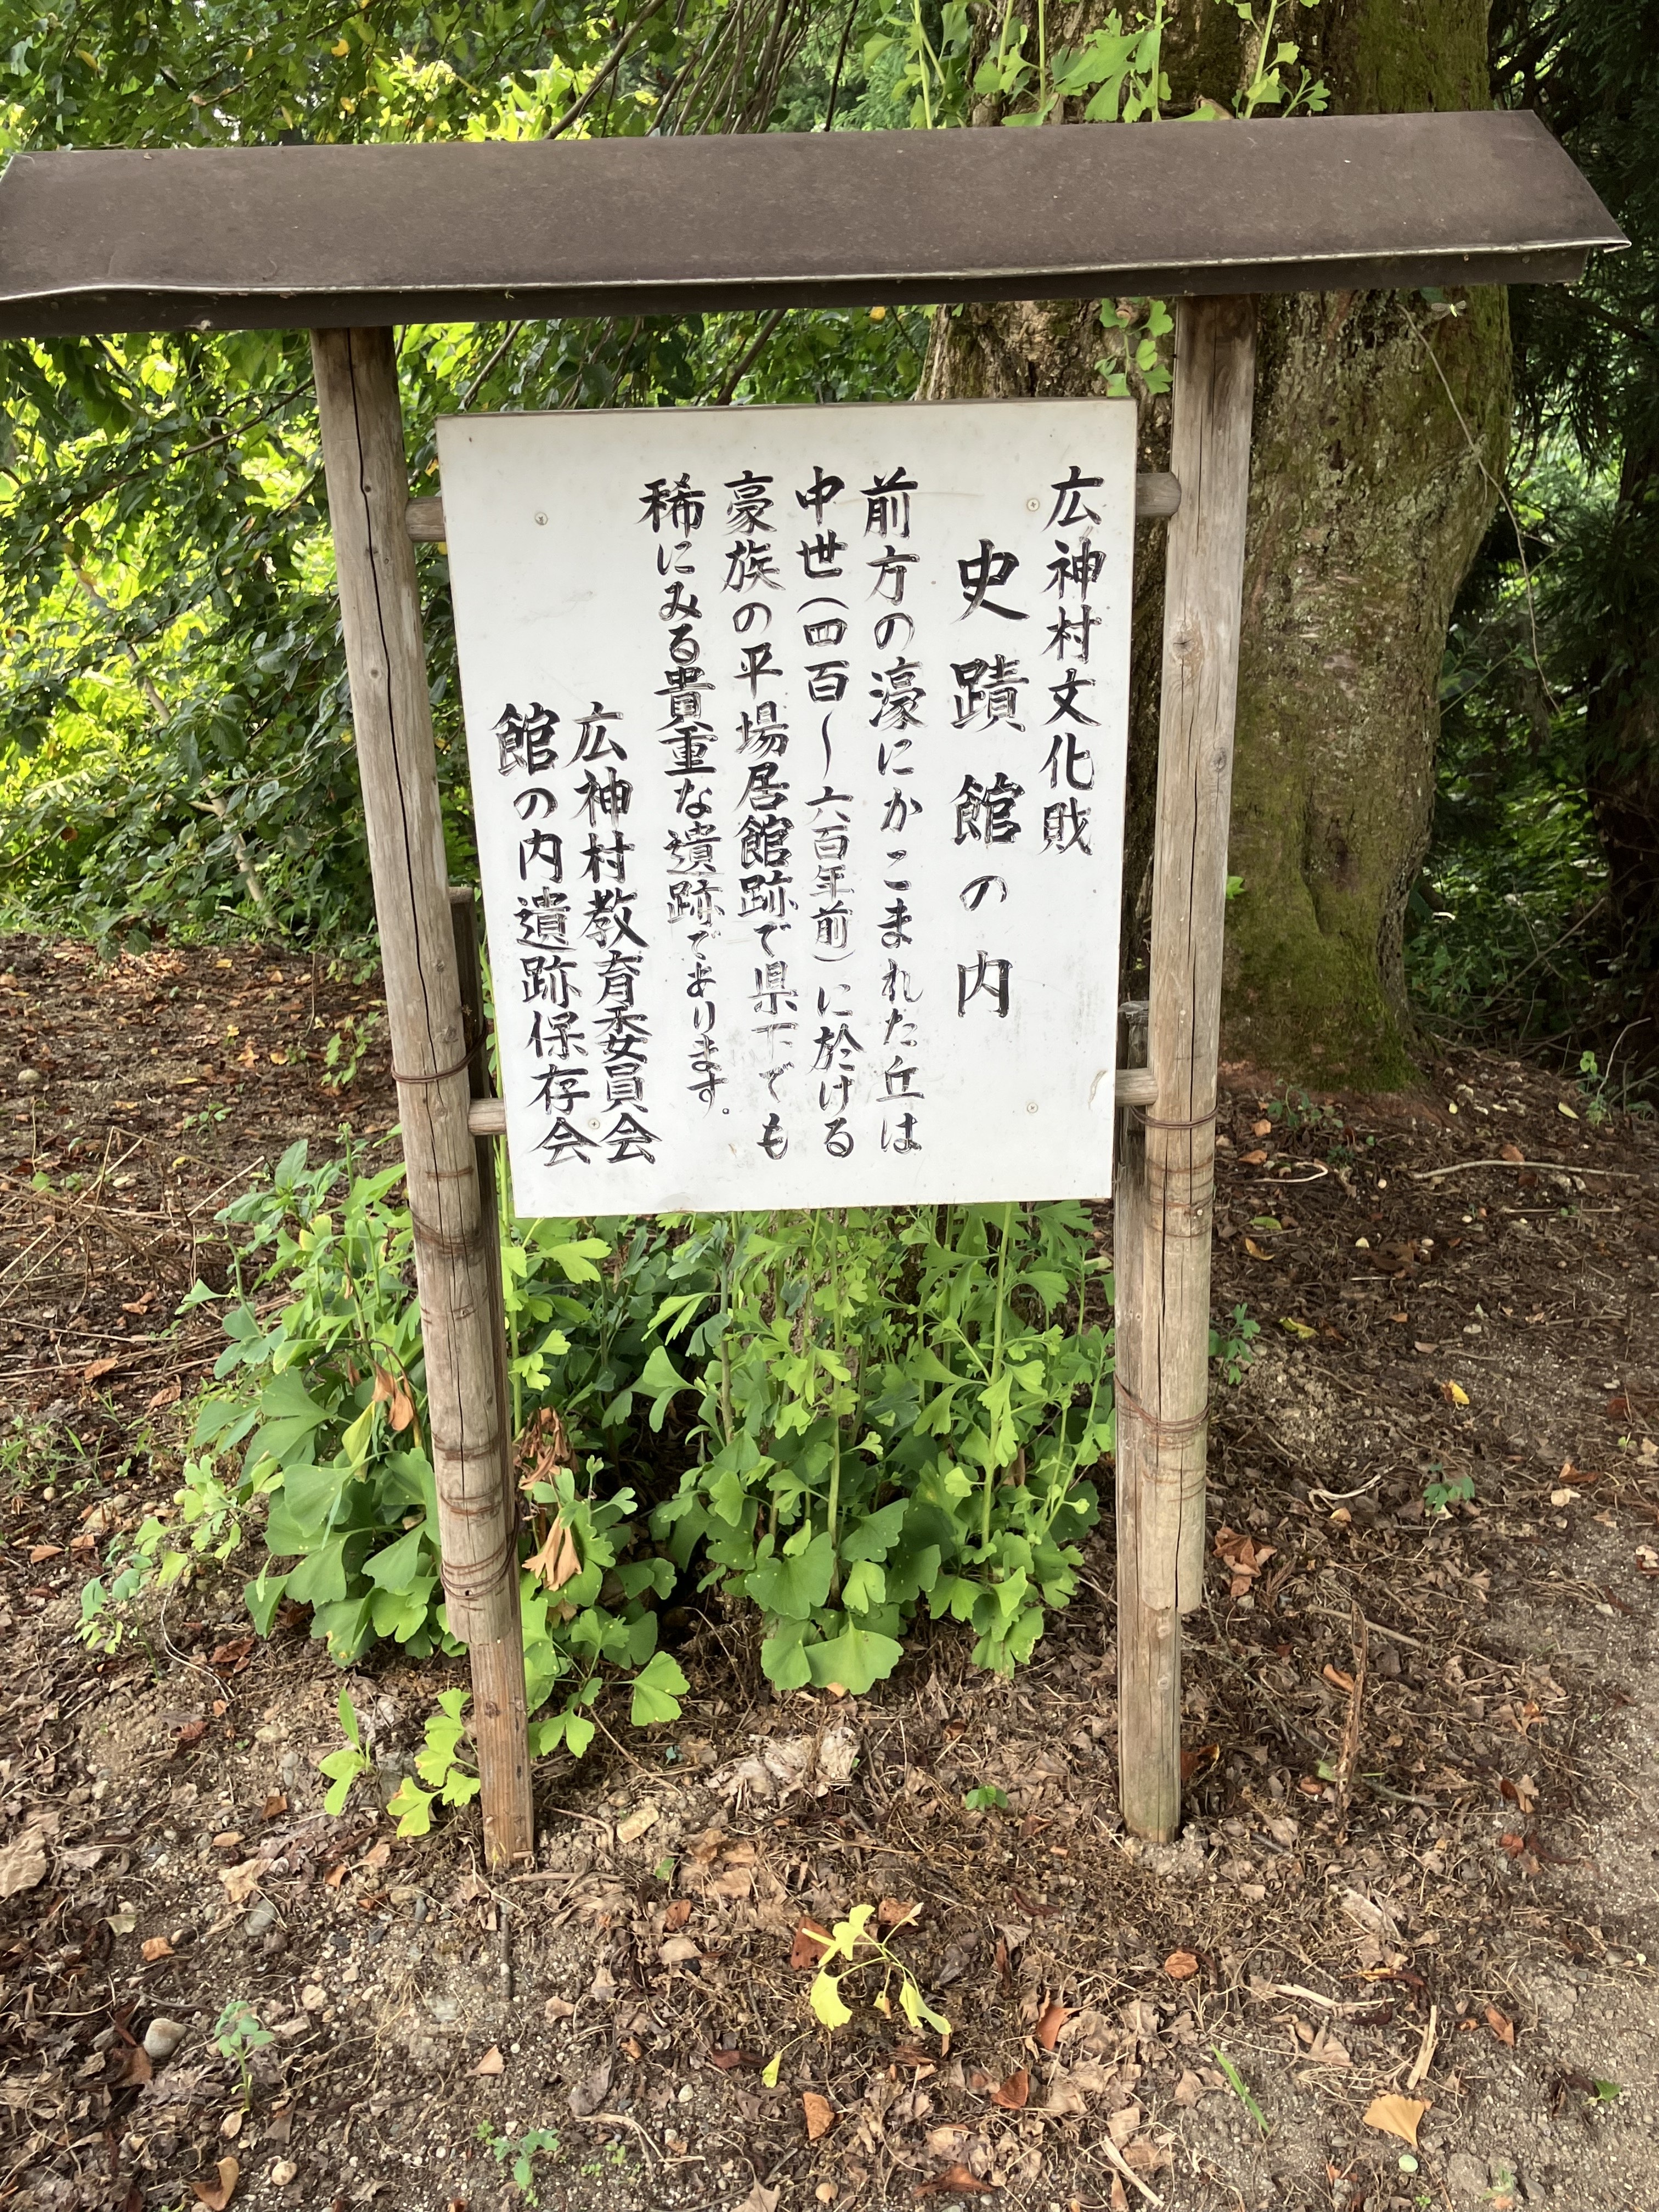 広神村文化財
史蹟館の内
前方の濠にかこまれた丘は
中世(四百〜六百年前)に於ける
豪族の平場居館跡で県下でも
稀にみる貴重な遺跡であります。
広神村教育委員会
館の内遺跡保存会